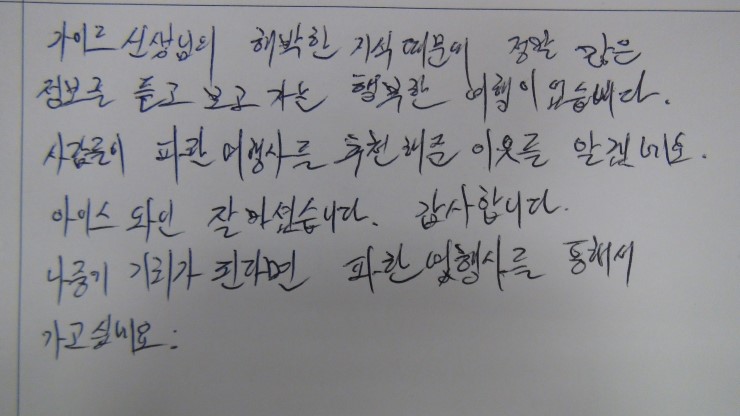 가이드 선생님의 해박한 지식 때문에 정말 많은
정보를 듣고 보고 가는 행복한 여행이 었습니다.
사람들이 파란 여행사를 추천해준 이웃를 알겠네요.
아이스 와인 잘 마셨습니다. 감사합니다.
나중기 기회가 된다면 파란 여행사를 통해서
가고싶네요.